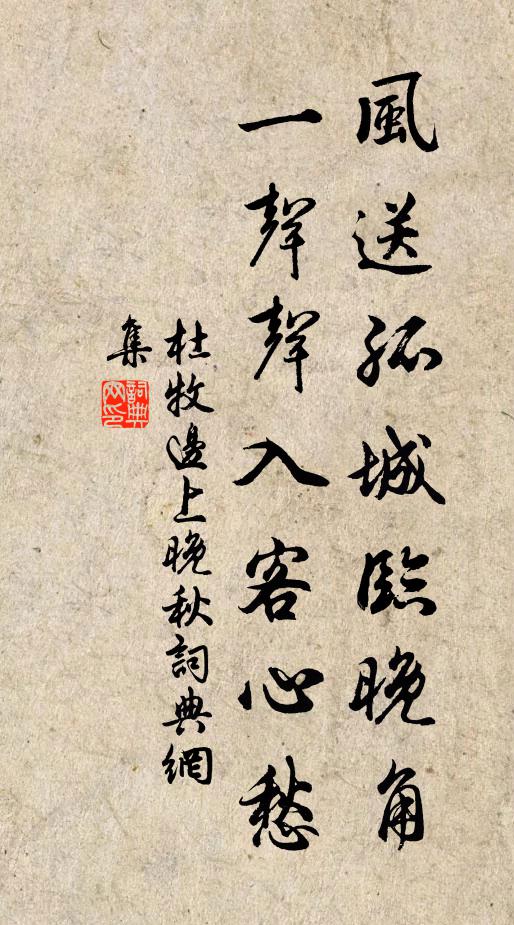 風送孤城臨晚角
一聲聲入客心愁
杜牧邊上晚秋詞典網
集
詞典
网印